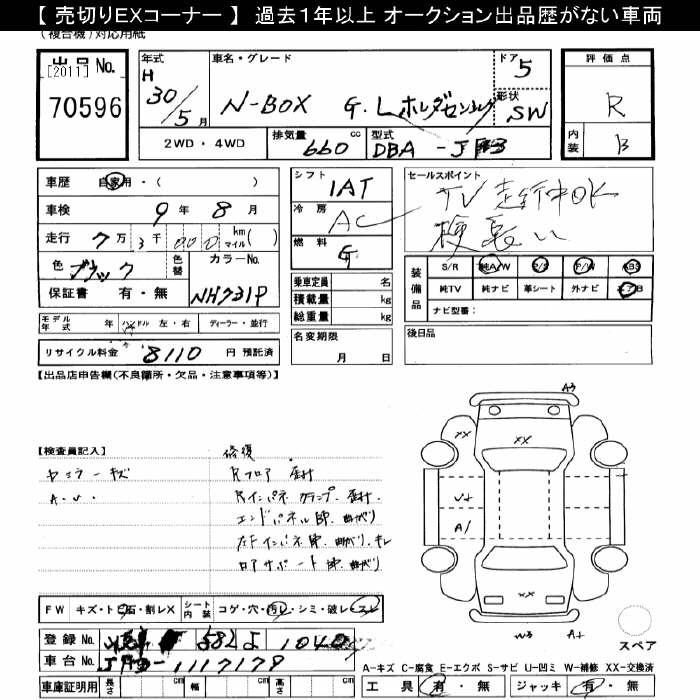 【 売切りEXコーナー 】 過去１年以上 オークション出品歴がない車両
(複合機)対応用紙
出品 No.
[2011]
70596
年式
H
30/5 月
車名・グレード
N-BOX G.Lホンダセンシング
ドア 5
形状 SW
2WD・4WD
排気量 660 cc
型式 DBA-JF3
評価点
R
内装 B
車歴 自家用・( )
車検 9 年 8 月
走行 7万 3千 000 km マイル( )
色 ブラック
色替
カラーNo.
NH731P
保証書 有・無
シフト 1AT
冷房 AC
燃料 G
乗車定員 名
積載量 kg
総重量 kg
名変期限
月 日
セールスポイント
TV走行中OK
装備品
S/R 純A/W P/S P/W ABS
純TV 純ナビ 革シート 外ナビ エアB
ナビ型番:
後日品
モデル年式 年 ハンドル 左・右 ディーラー・並行
リサイクル料金 8110 円 預託済
【出品店申告欄(不良箇所・欠品・注意事項等)】
【検査員記入】
ヤミラーキズ
A.U.
修復
Rフロア 歪み
エンドパネル 曲がり
FW キズ・トビ石・割レX
シート内装 コゲ・穴・汚レ・シミ・破レ・スレ
登録 No. 582 よ 1040
車台 No. 1117178
車庫証明用 長さ cm 幅 cm 高さ cm
A3
XX
XX
U+
A1
XX
W3
A+
スペア
A-キズ C-腐食 E-エクボ S-サビ U-凹ミ W-補修 XX-交換済
工具 有・無 ジャッキ 有・無